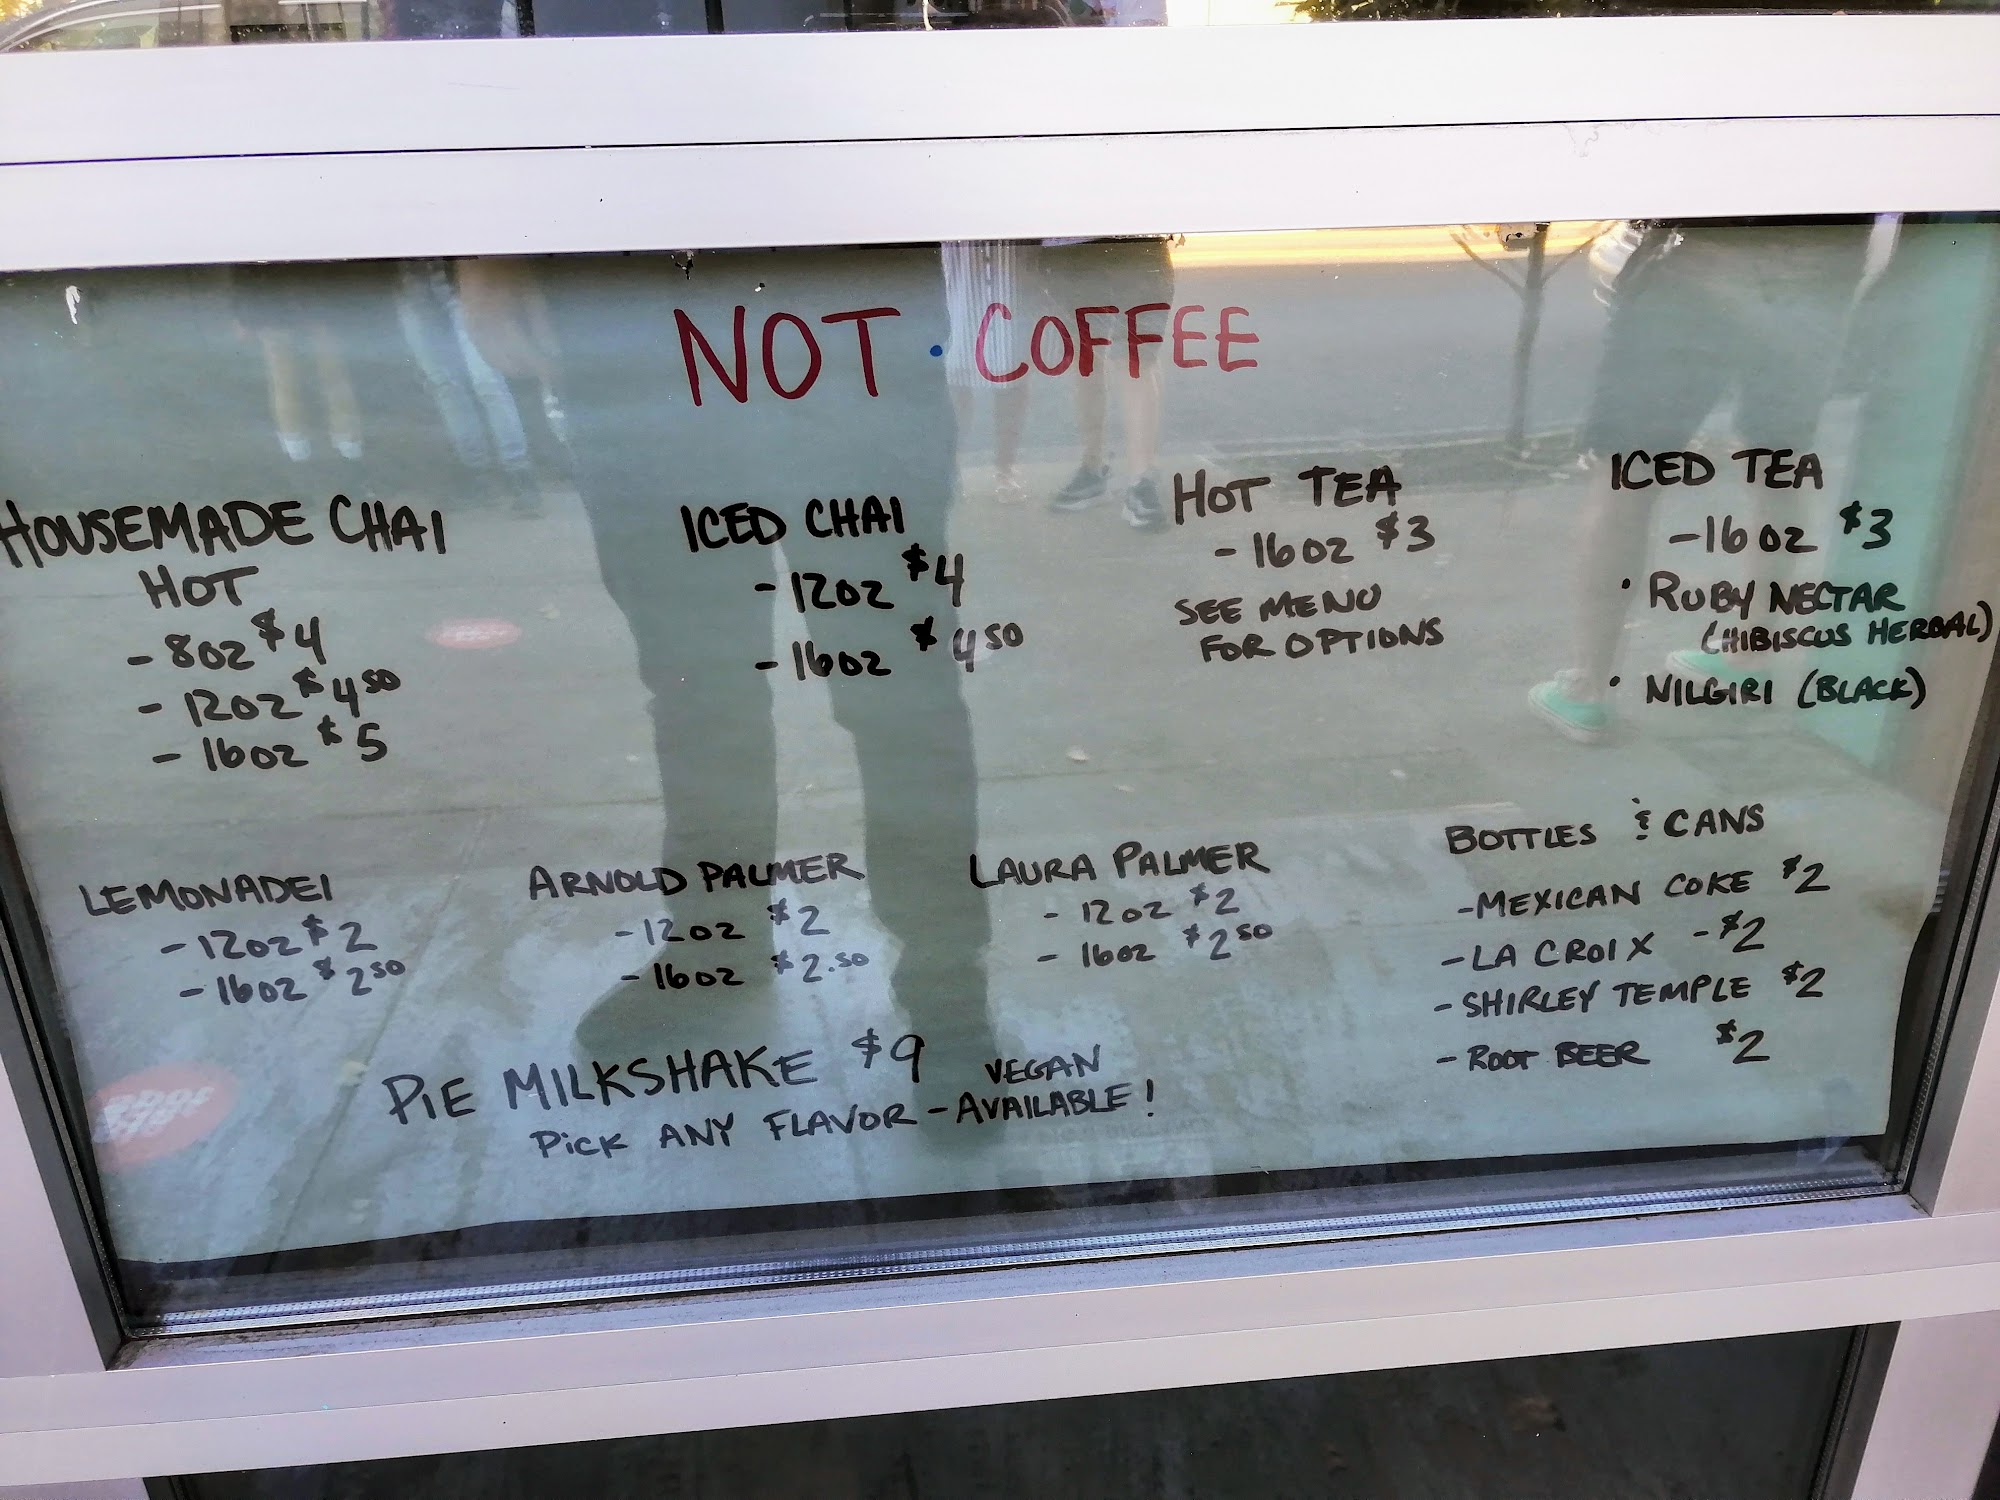 NOT · COFFEE
HOUSEMADE CHAI
HOT
- 8oz $4
- 12oz $4.50
- 16oz $5
ICED CHAI
- 12oz $4
- 16oz $4.50
HOT TEA
- 16oz $3
SEE MENU
FOR OPTIONS
ICED TEA
- 16oz $3
• RUBY NECTAR
(HIBISCUS HERBAL)
• NILGIRI (BLACK)
LEMONADE!
- 12oz $2
- 16oz $2.50
ARNOLD PALMER
- 12oz $2
- 16oz $2.50
LAURA PALMER
- 12oz $2
- 16oz $2.50
BOTTLES & CANS
- MEXICAN COKE $2
- LA CROIX - $2
- SHIRLEY TEMPLE $2
- ROOT BEER $2
PIE MILKSHAKE $9
PICK ANY FLAVOR - VEGAN
AVAILABLE!